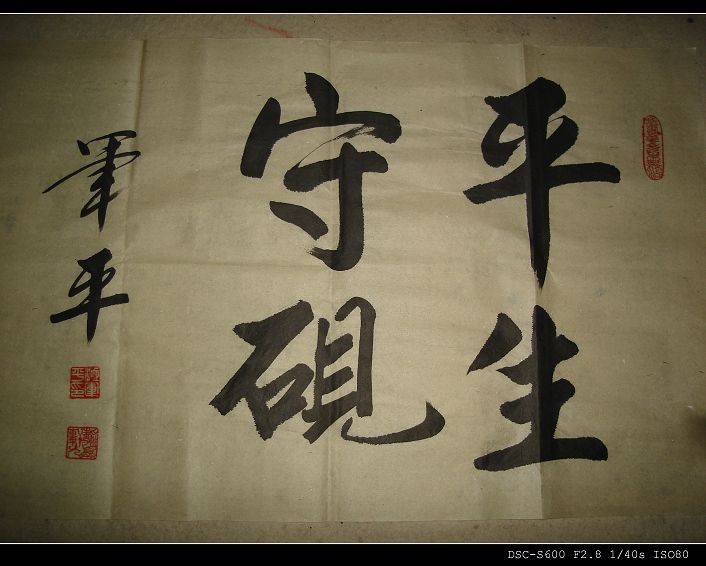 平生
守砚
軍平
DSC-S600 F2.8 1/40s ISO80